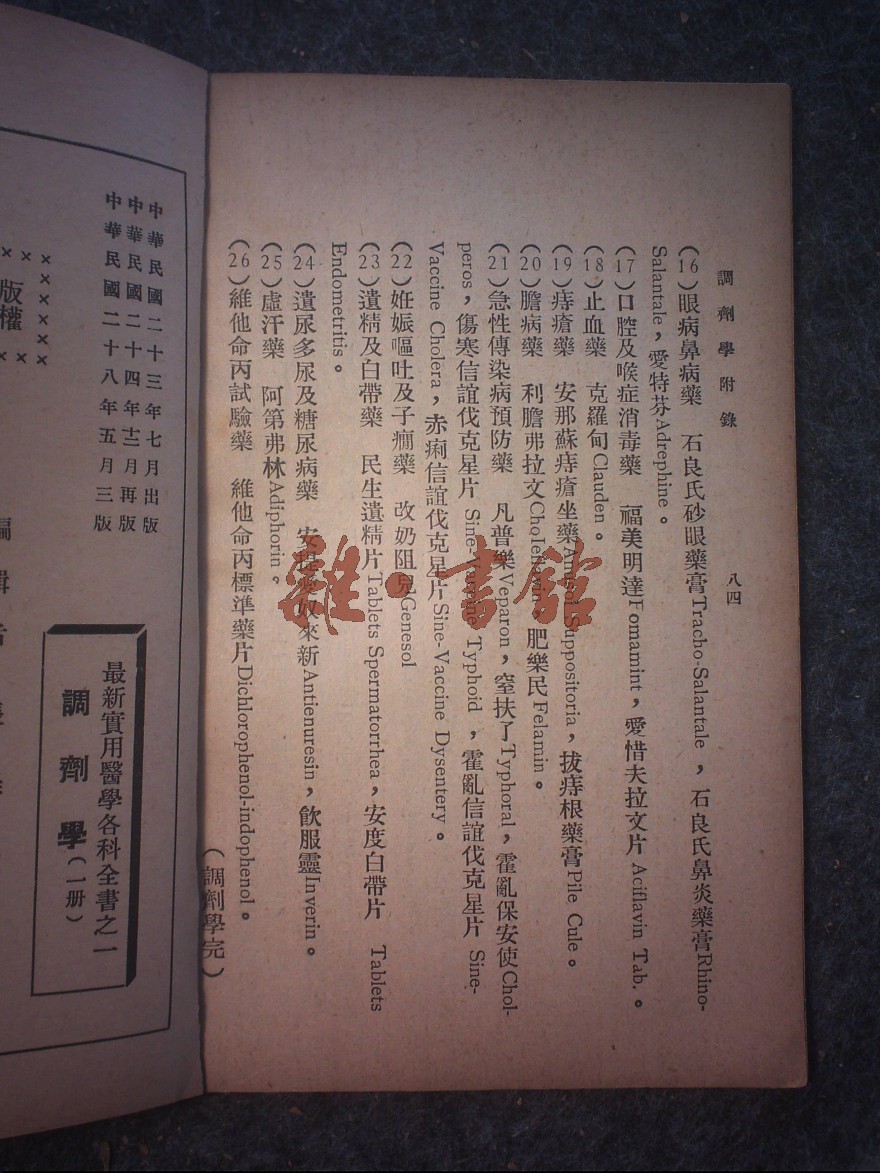 調劑學附錄
八四
(16)眼病鼻病藥 石良氏砂眼藥膏Tracho-Salantale，石良氏鼻炎藥膏Rhino-
Salantale，愛特芬Adrephine。
(17)口腔及喉症消毒藥 福美明達Fomamint，愛惜夫拉文片 Aciflavin Tab.。
(18)止血藥 克羅甸Clauden。
(19)痔瘡藥 安那蘇痔瘡坐藥 Suppositoria，拔痔根藥膏Pile Cule。
(20)膽病藥 利膽弗拉文Choleflavin，肥樂民Felamin。
(21)急性傳染病預防藥 凡普樂Veparon，窒扶了Typhoral，霍亂保安使Chol-
peros，傷寒信誼伐克星片 Sine-Vaccine Typhoid，霍亂信誼伐克星片 Sine-
Vaccine Cholera，赤痢信誼伐克星片Sine-Vaccine Dysentery。
(22)姙娠嘔吐及子癇藥 改奶阻兒Genesol
(23)遺精及白帶藥 民生遺精片Tablets Spermatorrhea，安度白帶片 Tablets
Endometritis。
(24)遺尿多尿及糖尿病藥 奴來新Antienuresin，飲服靈Inverin。
(25)虛汗藥 阿第弗林Adiphorin。
(26)維他命丙試驗藥 維他命丙標準藥片Dichlorophenol-indophenol。
(調劑學完)
雜·書館
中華民國二十三年七月出版
中華民國二十四年十二月再版
中華民國二十八年五月三版
最新實用醫學各科全書之一
調劑學(一册)
××××××
版權
編輯者